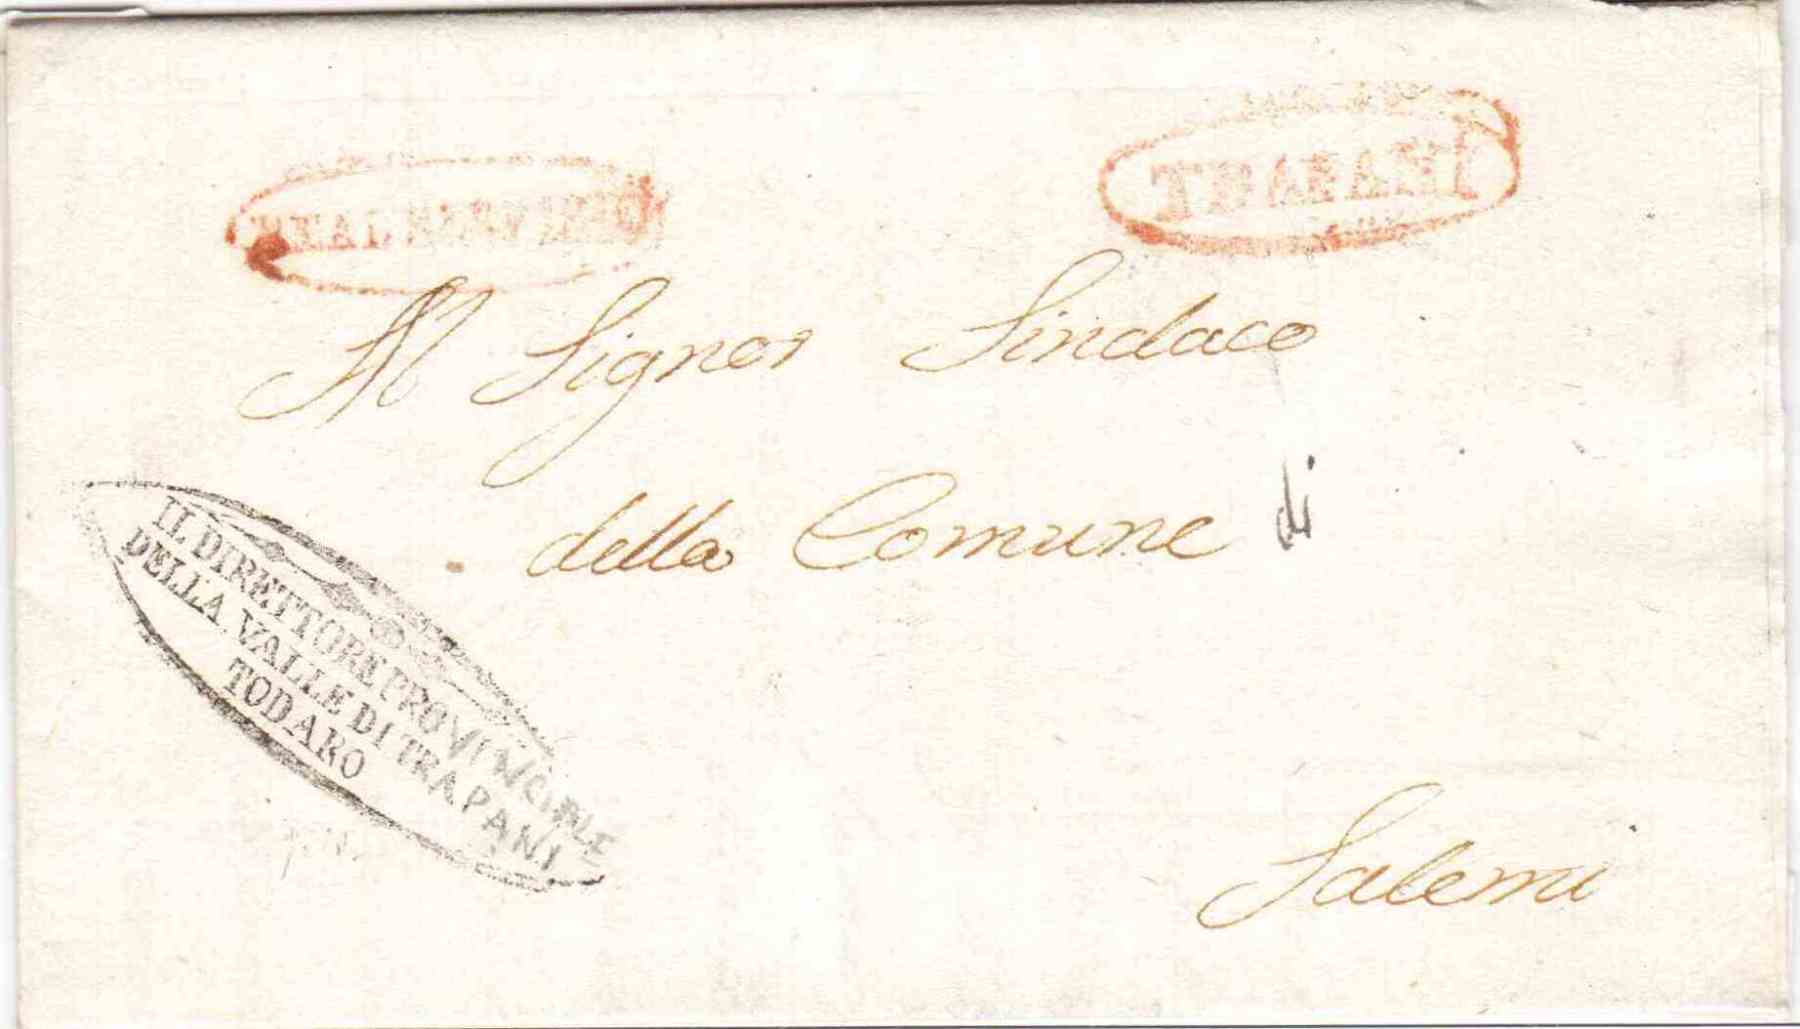 REAL SERVIZIO
TRAPANI
Al Signor Sindaco
della Comune di
IL DIRETTORE PROVINCIALE
DELLA VALLE DI TRAPANI
TODARO
Salemi